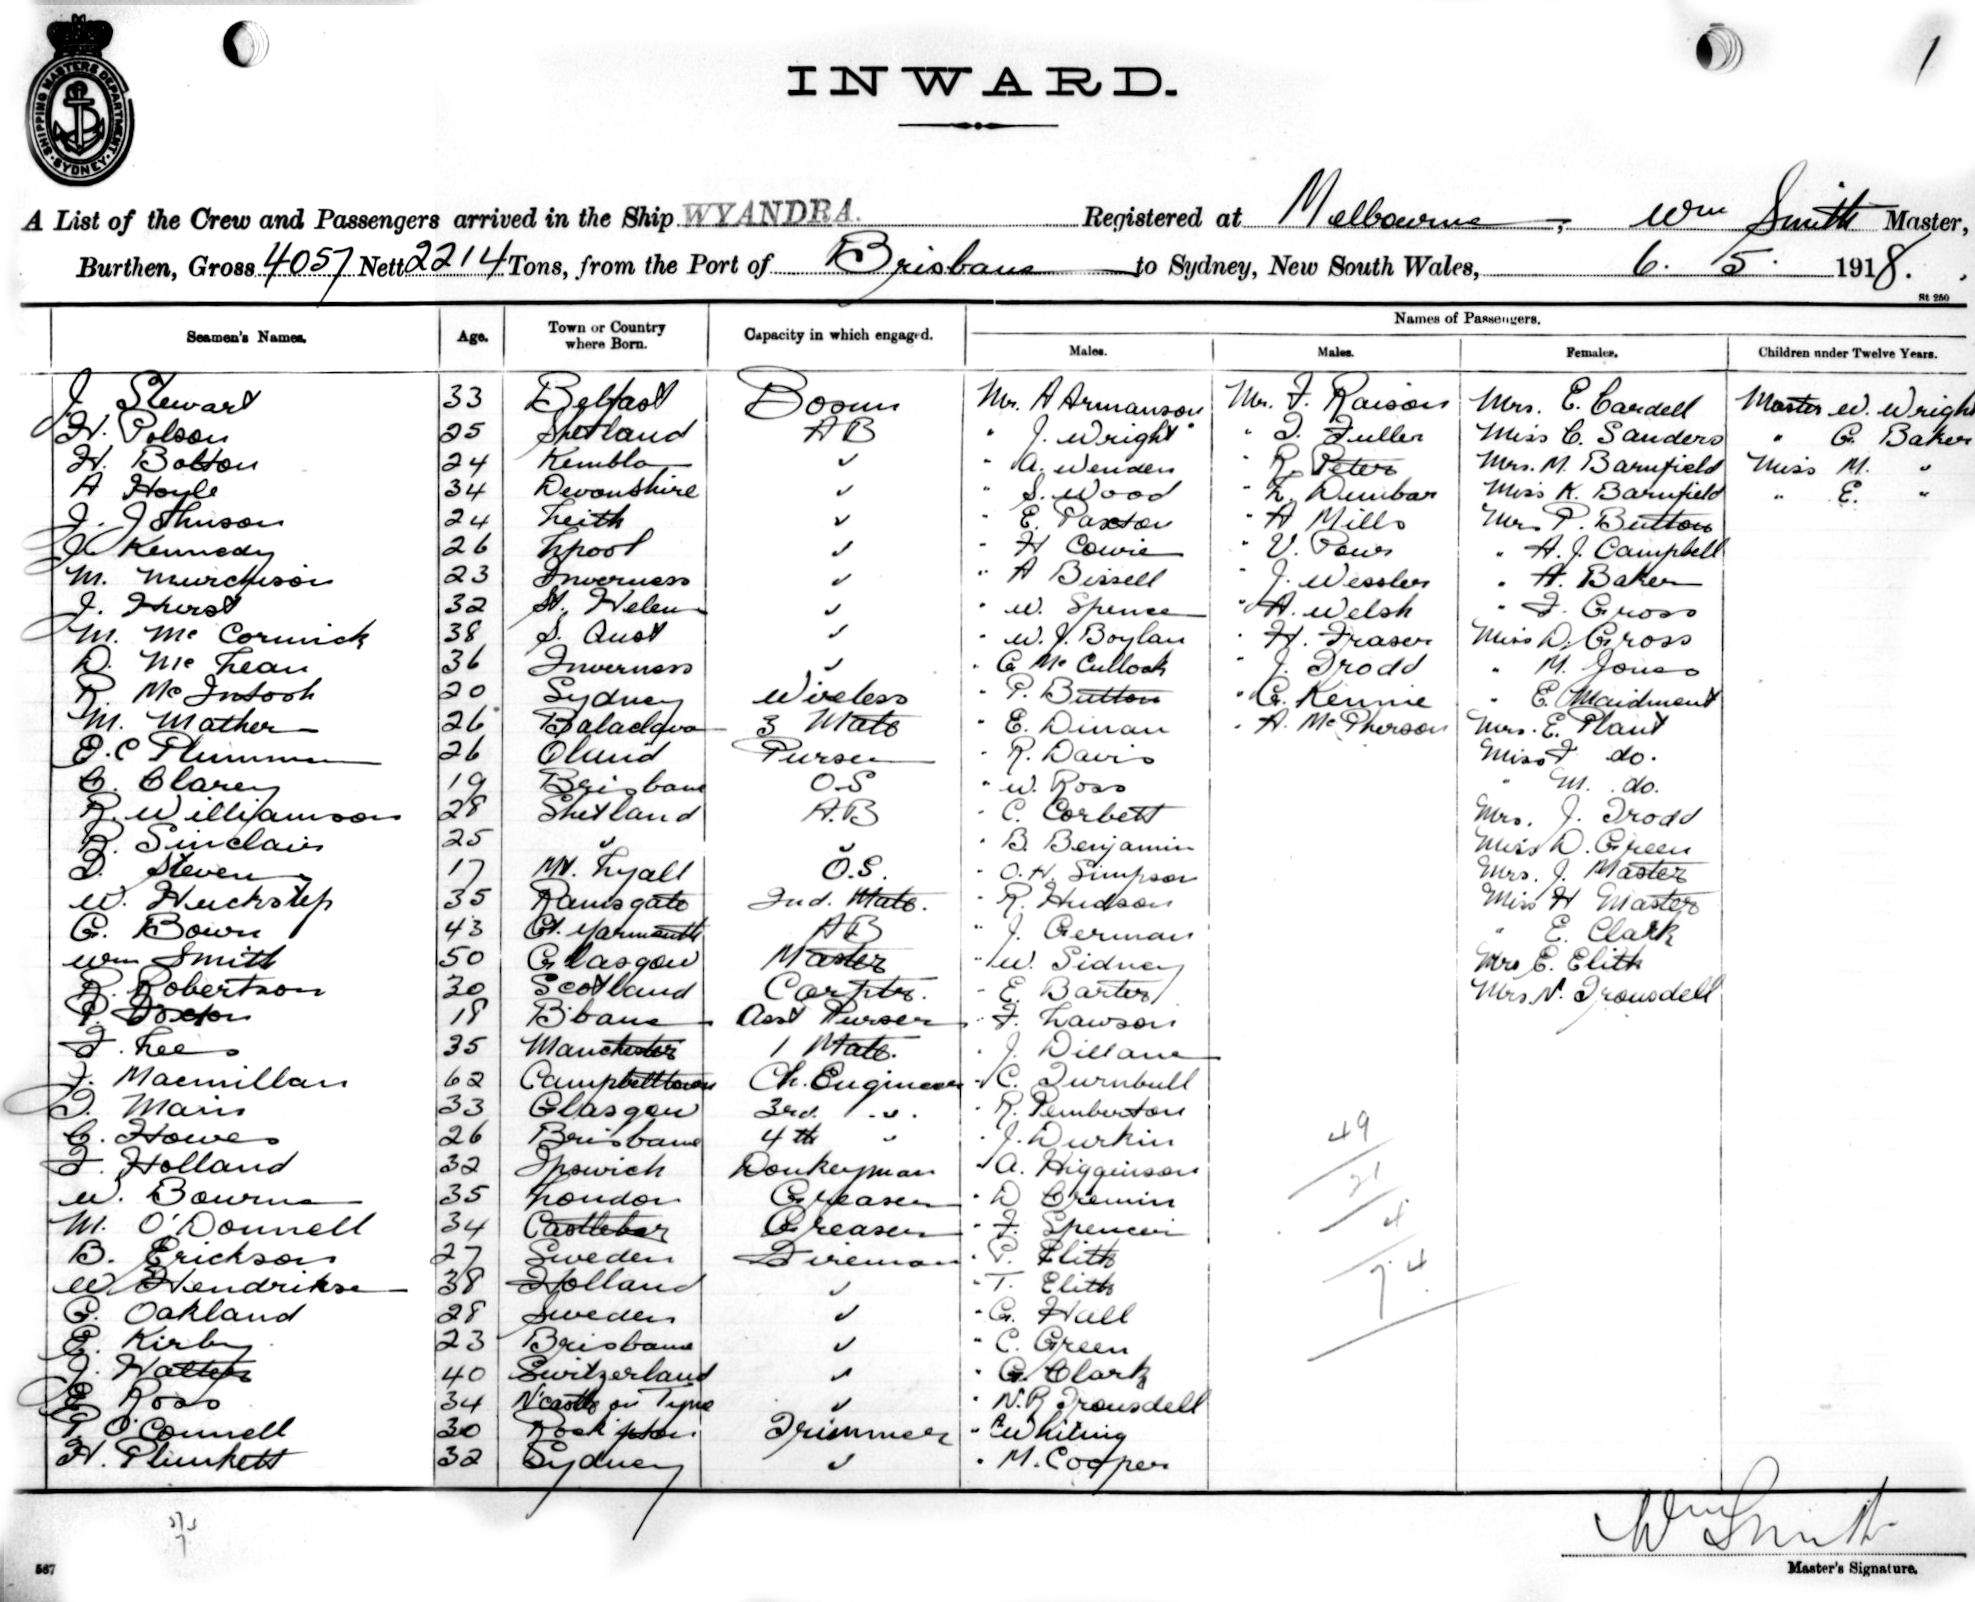 SHIPPING MASTERS DEPARTMENT. SYDNEY.
1
INWARD.
A List of the Crew and Passengers arrived in the Ship WYANDRA. Registered at Melbourne, Wm Smith Master,
Burthen, Gross 4057 Nett 2214 Tons, from the Port of Brisbane to Sydney, New South Wales, 6. 5. 1918.
St 250
Seamen's Names. Age. Town or Country where Born. Capacity in which engaged. Names of Passengers.
Males. Males. Females. Children under Twelve Years.
J. Stewart 33 Belfast Bosun Mr. A Armanson Mr. F. Raison Mrs. E. Cardell Master W. Wright
H. Polson 25 Shetland AB " J. Wright " T. Fuller Miss C. Sanders " G. Baker
H. Bolton 24 Kembla " " A. Wenden " R. Peter Mrs. M. Barnfield Miss M. "
A Hoyle 34 Devonshire " " S. Wood " L. Dunbar Miss K. Barnfield " E. "
J. Johnson 24 Leith " " E. Paxton " A Mills Mrs P. Button
J. Kennedy 26 Lpool " " H Cowie " V. Pows " A. J. Campbell
M. Murchison 23 Inverness " " A Bissell " J. Wessler " A. Baker
J. Hurst 32 St. Helen " " W. Spence " A. Welsh " F. Gross
M. McCormick 38 S. Aust " " W. J. Boylan " H. Fraser Miss D. Gross
D. McLean 36 Inverness " " G McCulloch " J. Trodd " M. Jones
R. McIntosh 20 Sydney Wireless " P. Button " G. Kennie " E. Maidment
M. Mather 26 Balaclava 3 Mate " E. Dinan " A. McPherson Mrs. E. Plant
E. C Plummer 26 Purser " R. Davis Miss F do.
C. Clarey 19 Brisbane O.S " W. Ross " M. do.
R. Williamson 28 Shetland A.B " C. Corbett Mrs. J. Trodd
R. Sinclair 25 " " " B. Benjamin Miss D. Green
D. Steven 17 Mt. Lyall O.S. " O. H. Simpson Mrs. J. Master
W. Huckstep 35 Ramsgate 2nd. Mate. " R. Hudson Miss H Master
G. Bown 43 Gt. Yarmouth AB " J. German " E. Clark
Wm Smith 50 Glasgow Master " W. Sidney Mrs E. Elith
R. Robertson 30 Scotland Carptr. " E. Barter Mrs. N. Trousdell
P. 18 B'bane Asst Purser " F. Lawson
F. Lees 35 Manchester 1 Mate. " J. Dillane
J. Macmillan 62 Campbelltown Ch. Engineer " C. Turnbull
D. Main 33 Glasgow 3rd. " " R. Pemberton
C. Howes 26 Brisbane 4th " " J. Durkin 49
F. Holland 32 Ipswich Donkeyman " A. Higginson 21
W. Bourne 35 London Greaser " D Cremin
M. O'Donnell 34 Castlebar Greaser " F. Spencer 4
B. Erickson 27 Sweden Fireman " P. Elith
W Hendrikse 38 Holland " " T. Elith 74
G. Oakland 28 Sweden " " G. Hall
E. Kirby 23 Brisbane " " C. Green
J. Halter 40 Switzerland " " G. Clark
E Ross 34 N'castle on Tyne " " N. R Trousdell
P O'Connell 30 Rock'pton Trimmer " Whiting
H. Plunkett 32 Sydney " " M. Cooper
Wm Smith
Master's Signature.
567